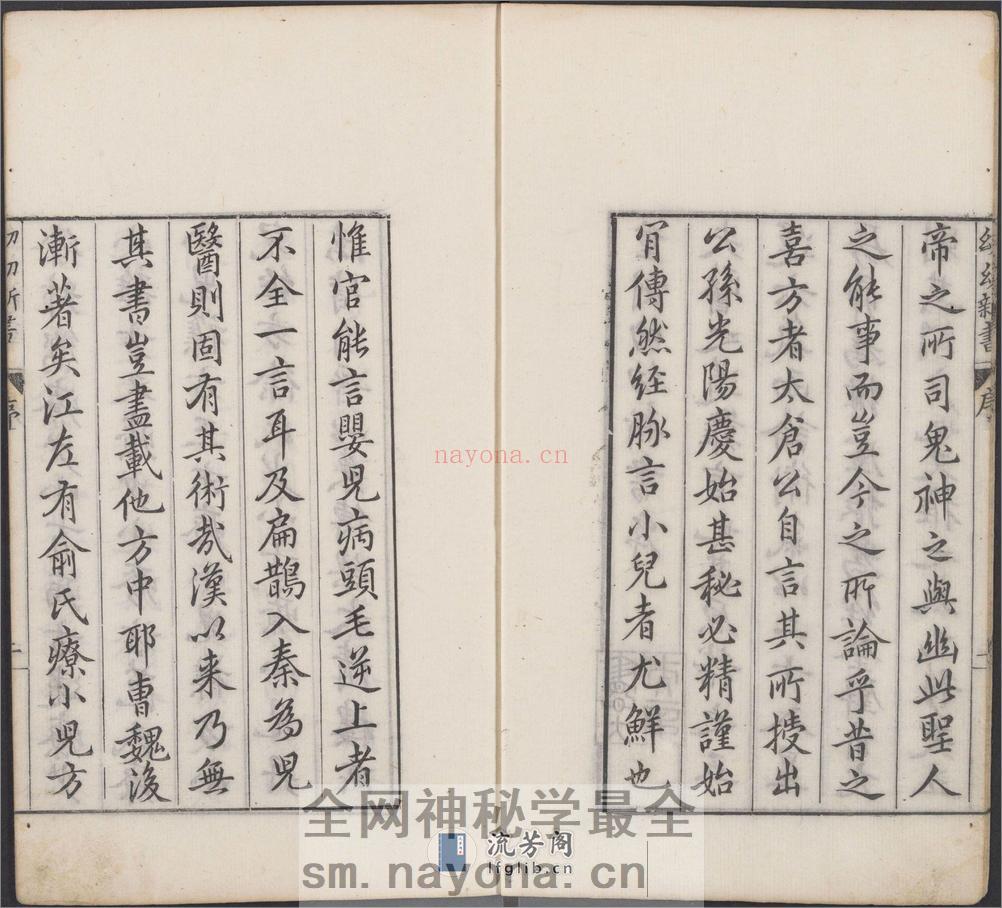 幼幼新書 序 二
帝之所司鬼神之與幽此聖人
之能事而豈今之所論乎昔之
喜方者太倉公自言其所授出
公孫光陽慶始甚秘必精謹始
肎傳然經脉言小兒者尤鮮也
惟官能言嬰兒病頭毛逆上者
不全一言耳及扁鵲入秦為兒
醫則固有其術哉漢以来乃無
其書豈盡載他方中耶曹魏後
漸著矣江左有俞氏療小兒方
幼幼新書 序 二
nayona.cn
全网神秘学最全
流芳阁
lfglib.cn
sm.nayona.cn